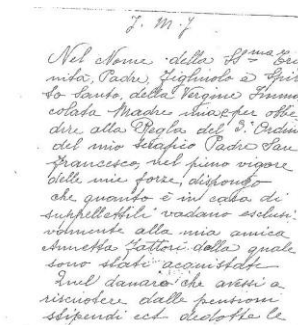 J. M. J.
Nel Nome della SS.ma Tri
nità, Padre, Figliuolo e Spiri
to Santo, della Vergine Imma
colata Madre mia, e per obbe
dire alla Regola del 3. Ordine
del mio serafico Padre San
Francesco, nel pieno vigore
delle mie forze, dispongo
che quanto è in casa di
suppellettili vadano esclusi
vamente alla mia amica
Annetta Fattori dalla quale
sono stati acquistati
Quel danaro che avessi a
riscuotere dalle pensioni
stipendi ect dedotte le